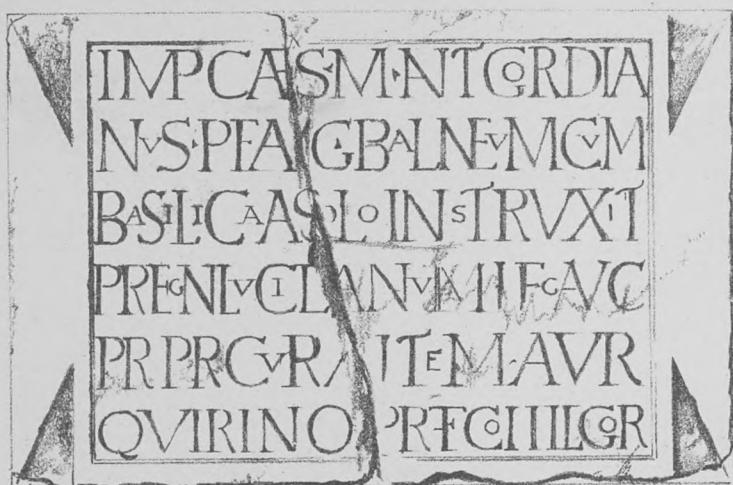 IMP CAES·M·ANT GORDIA
NVS·P·F·AVG BALNEVM CVM
BASILICA A SOLO INSTRVXIT
PR EGN LVCILIANVM LEG AVG
PR PR CVRANTE M·AVR
QVIRINO PREF COH I L GOR